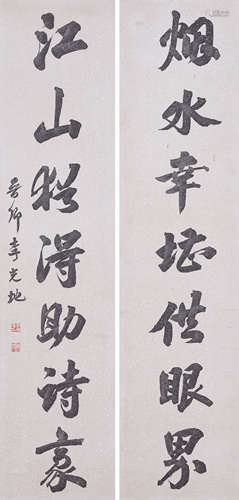 烟水幸堪供眼界
江山犹得助诗豪
晋卿李光地